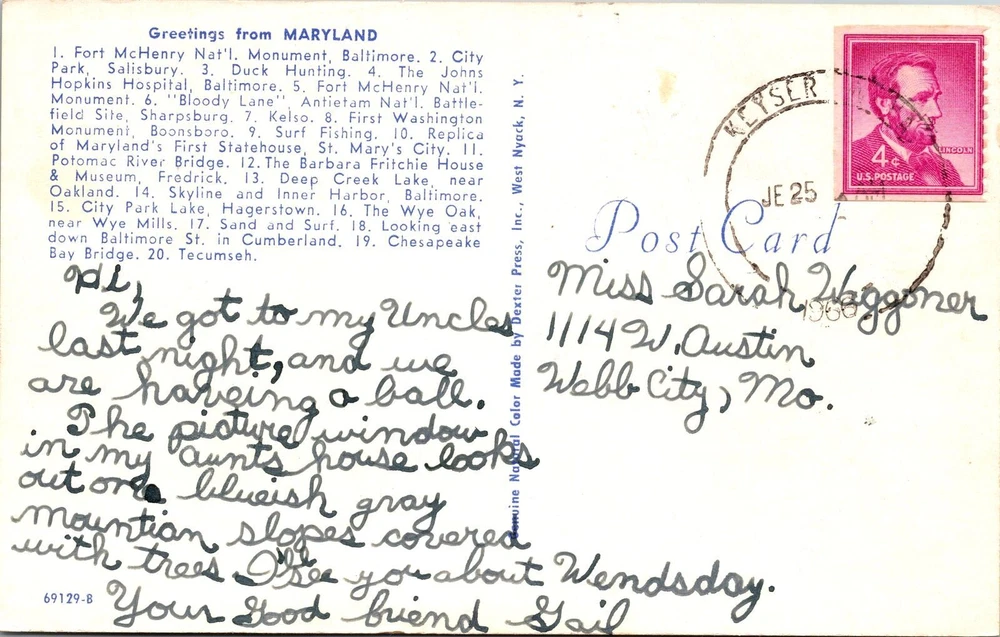 Greetings from MARYLAND
1. Fort McHenry Nat'l. Monument, Baltimore. 2. City
Park, Salisbury. 3. Duck Hunting. 4. The Johns
Hopkins Hospital, Baltimore. 5. Fort McHenry Nat'l.
Monument. 6. "Bloody Lane", Antietam Nat'l. Battle-
field Site, Sharpsburg. 7. Kelso. 8. First Washington
Monument, Boonsboro. 9. Surf Fishing. 10. Replica
of Maryland's First Statehouse, St. Mary's City. 11.
Potomac River Bridge. 12. The Barbara Fritchie House
& Museum, Fredrick. 13. Deep Creek Lake, near
Oakland. 14. Skyline and Inner Harbor, Baltimore.
15. City Park Lake, Hagerstown. 16. The Wye Oak,
near Wye Mills. 17. Sand and Surf. 18. Looking east
down Baltimore St. in Cumberland. 19. Chesapeake
Bay Bridge. 20. Tecumseh.
Hi,
We got to my Uncles
last night, and we
are haveing a ball.
The picture window
in my aunts house looks
out on blueish gray
mountian slopes covered
with trees I'll see you about Wendsday.
Your Good friend Gail
69129-B
Genuine Natural Color Made by Dexter Press, Inc., West Nyack, N. Y.
Post Card
KEYSER
JE 25 AM
LINCOLN
4¢
U.S. POSTAGE
Miss Sarah Waggoner
1114 W. Austin
Webb City, Mo.